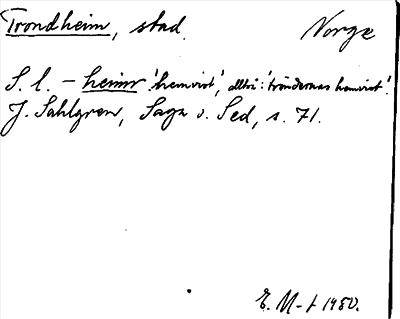 Trondheim, stad. Norge
S. l. - heimr 'hemvist', alltså: 'tröndernas hemvist'.
J. Sahlgren, Saga o. Sed, s. 71.
E. M-t 1950.